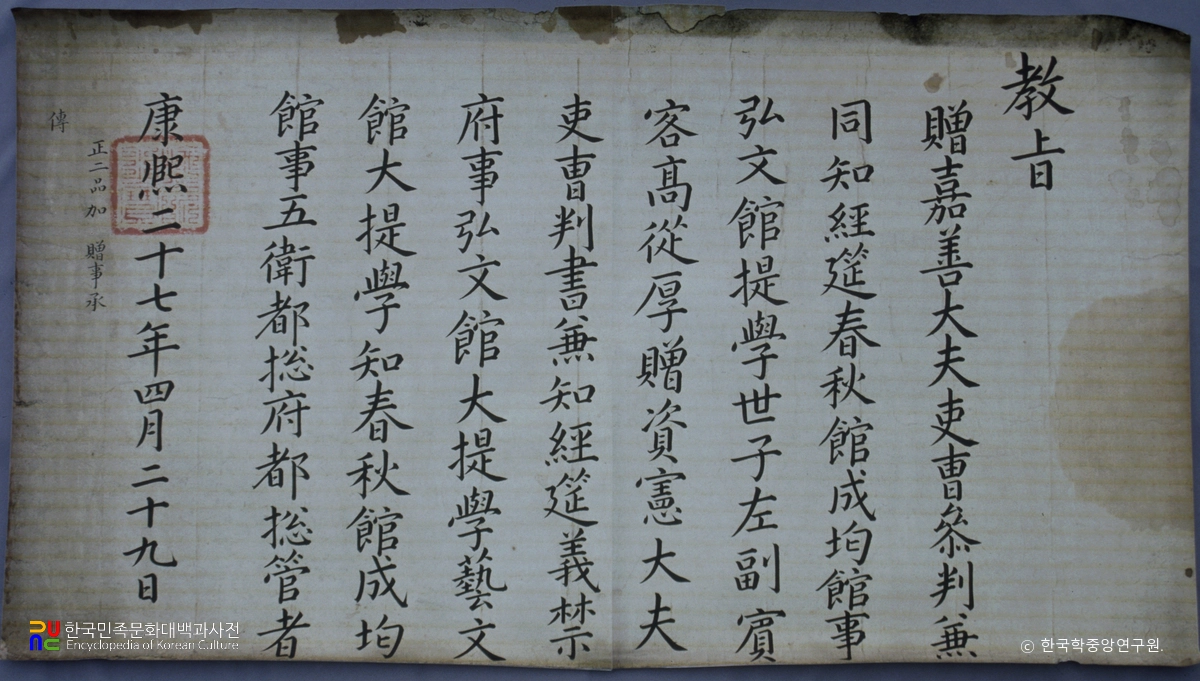 教旨
贈嘉善大夫吏曹叅判兼
同知經筵春秋館成均館事
弘文館提學世子左副賓
客高從厚贈資憲大夫
吏曹判書兼知經筵義禁
府事弘文館大提學藝文
館大提學知春秋館成均
館事五衛都摠府都摠管者
康熙二十七年四月二十九日
正二品加 贈事承
傳
한국민족문화대백과사전
Encyclopedia of Korean Culture
© 한국학중앙연구원.